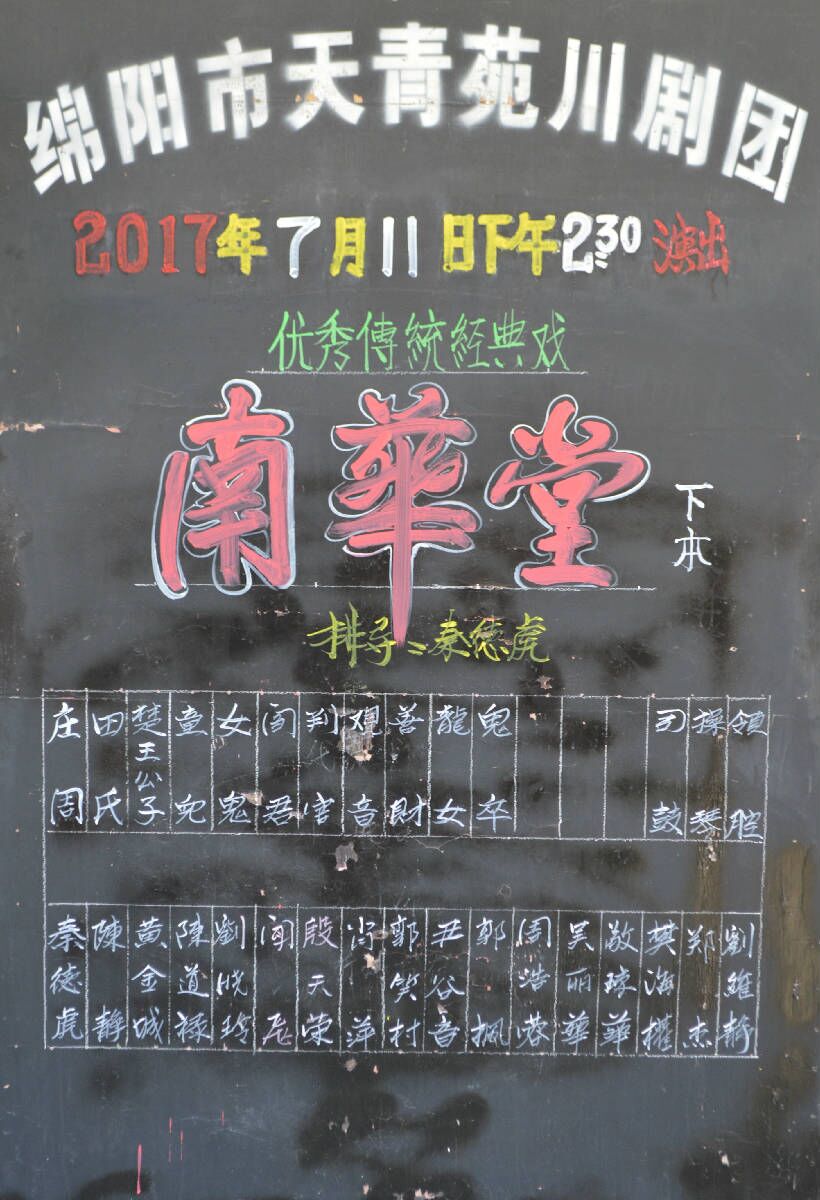 绵阳市天青苑川剧团
2017年7月11日下午2:30演出
优秀傳統經典戏
南華堂
下本
排导:秦德虎
庄周 田氏 楚王公子 童儿 女鬼 阎君 判官 观音 善財 龍女 鬼卒 司鼓 操琴 領腔
秦德虎 陳静 黄金城 陳道禄 劉晓玲 殷天荣 冯萍 郭笑村 丑谷音 郭枫 周浩蓉 吴丽華 敬琼華 樊海權 郑杰 劉維静